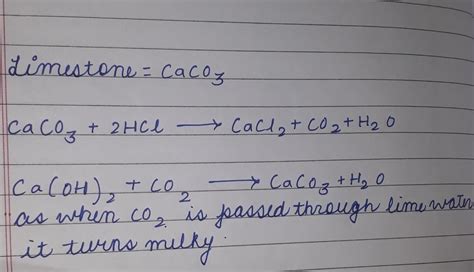 Limestone = CaCO3
CaCO3 + 2HCl ⟶ CaCl2 + CO2 + H2O
Ca(OH)2 + CO2 ⟶ CaCO3 + H2O
as when CO2 is passed through lime water
it turns milky.